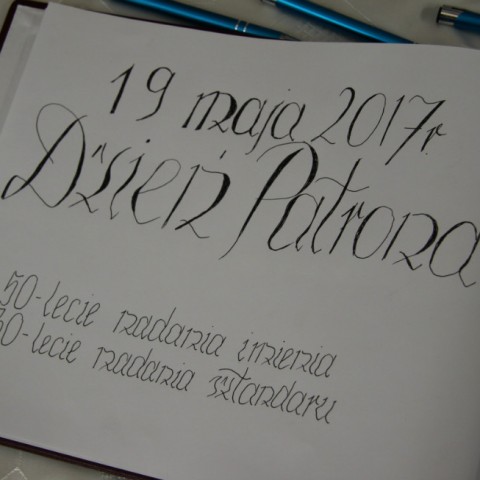 19 maja 2017r.
Dzień Patrona
50-lecie nadania imienia
30-lecie nadania sztandaru